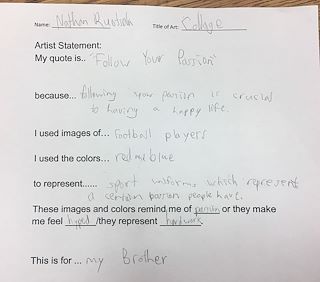 Name: Nathan Title of Art: Collage
Artist Statement:
My quote is.. "Follow Your Passion"
because... following your passion is crucial
to having a happy life.
I used images of... football players
I used the colors... red and blue
to represent...... sport uniforms which represent
a certain passion people have.
These images and colors remind me of passion or they make
me feel hyped /they represent hardwork.
This is for ... my Brother